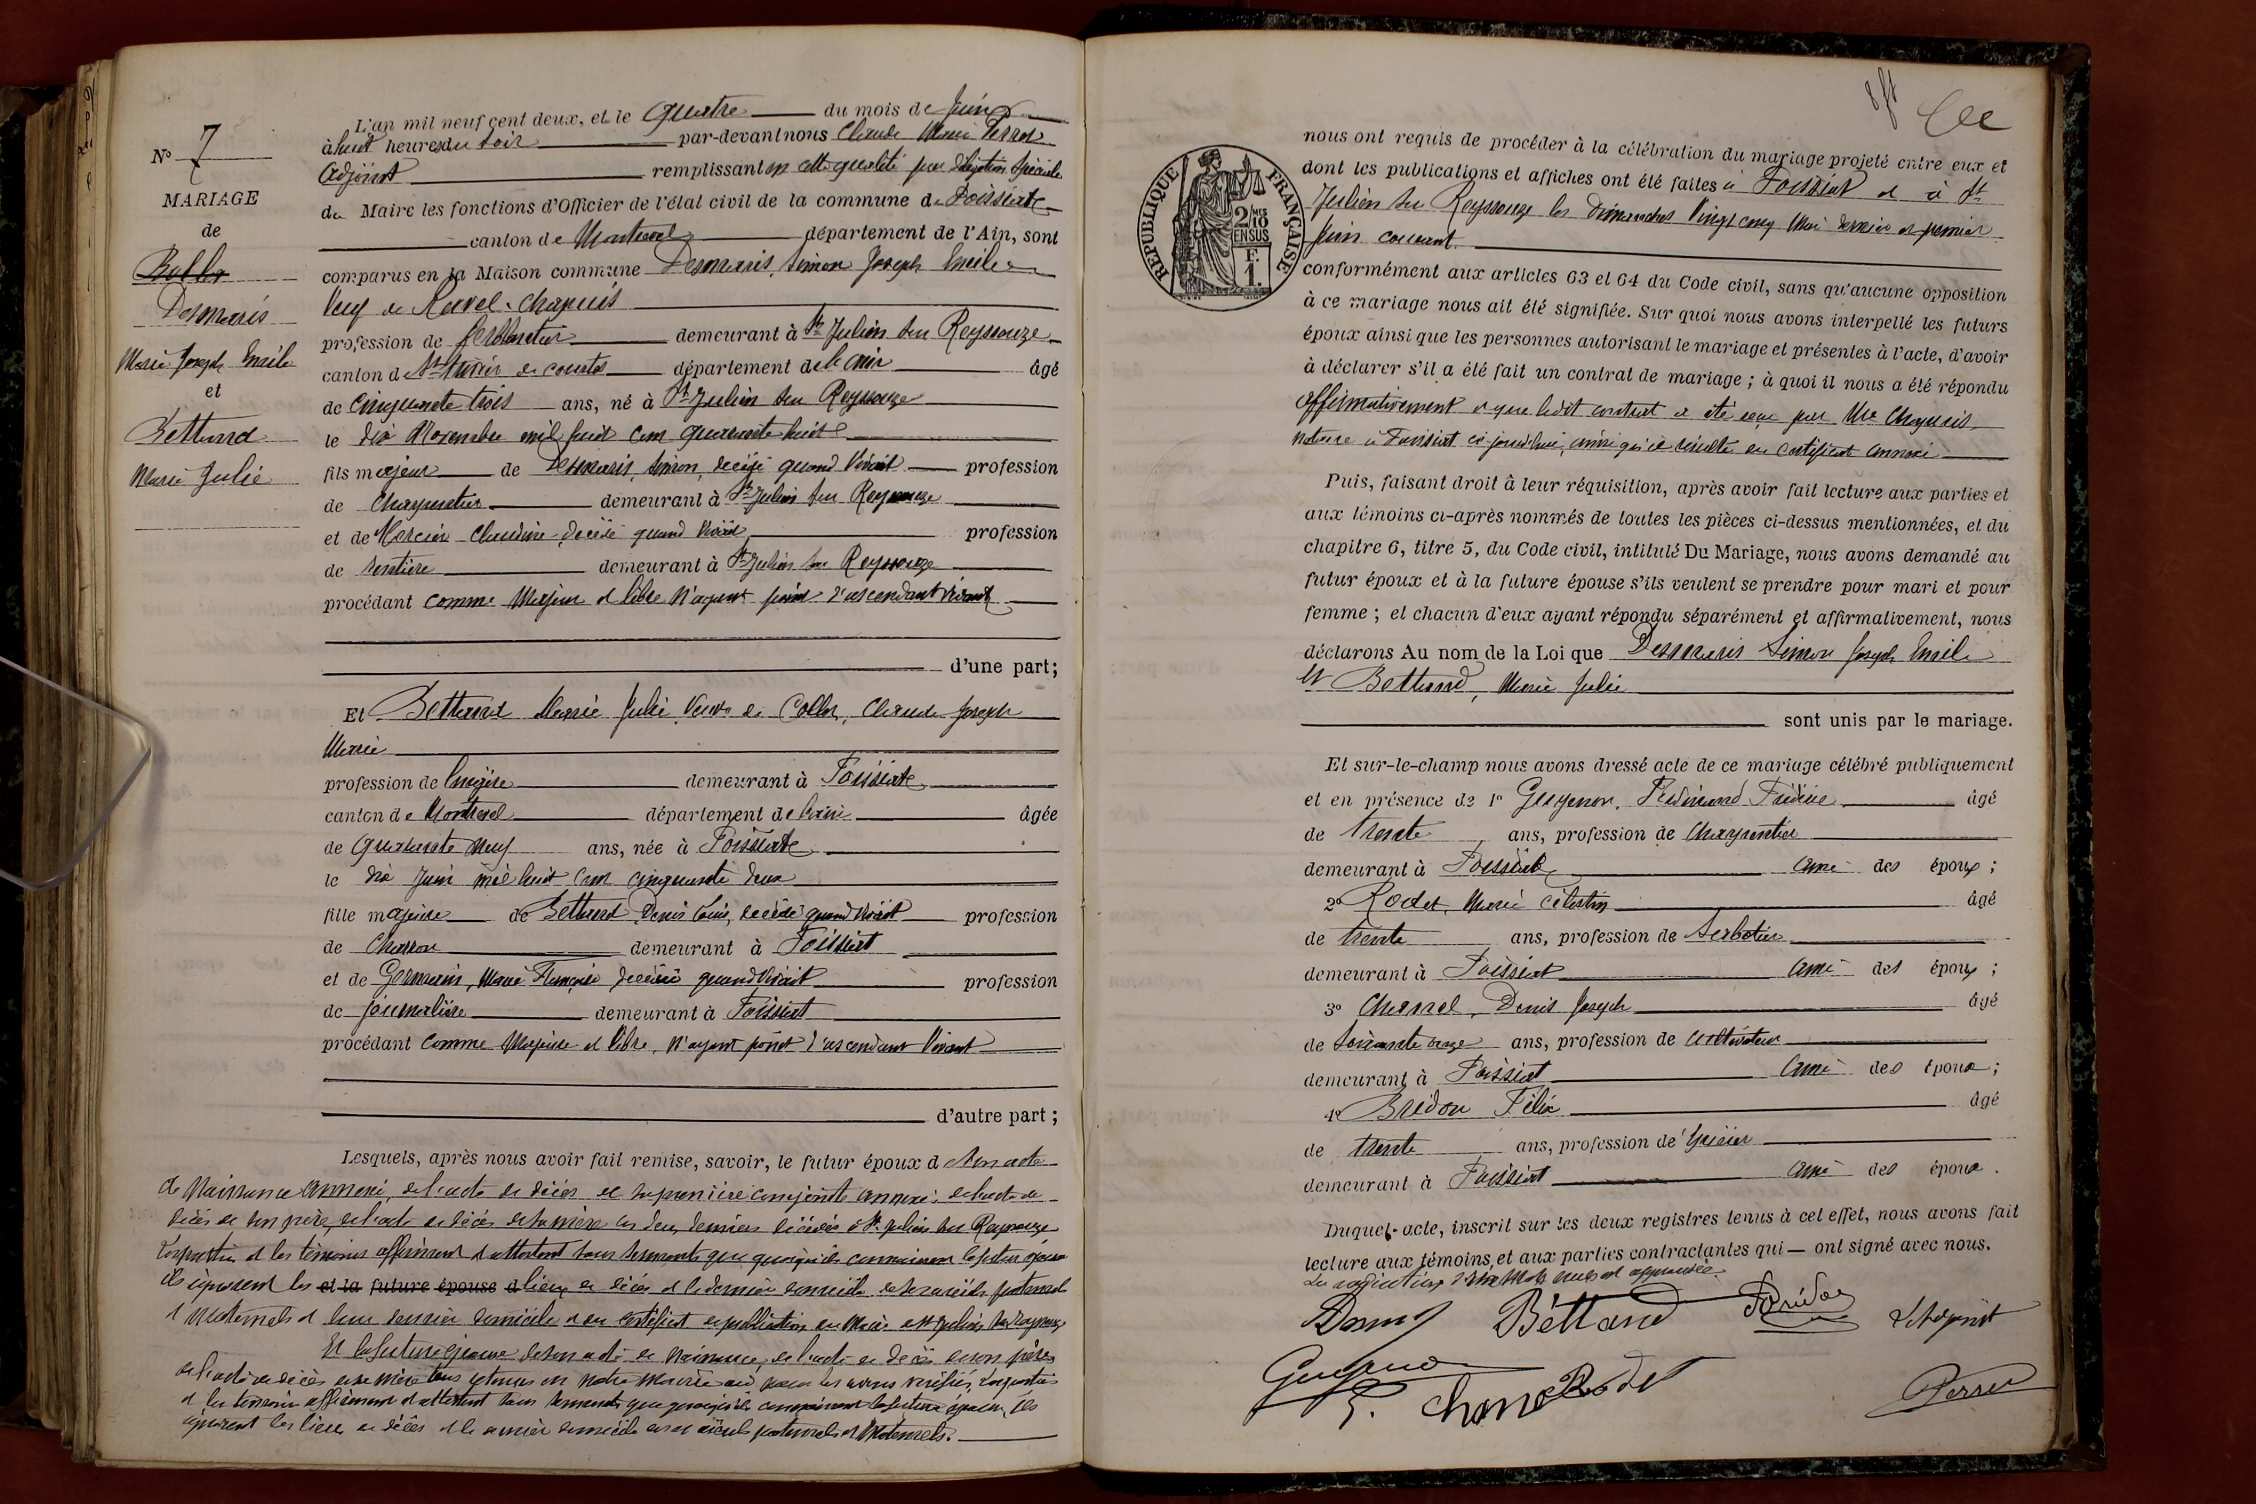 N° 7
MARIAGE
de
Desmaris
Marie Joseph Emile
et
Bettand
Marie Julie
L'an mil neuf cent deux, et le quatre du mois de Juin
à huit heures du soir par-devant nous Claude Marie Perret
adjoint remplissant en cette qualité par délégation spéciale
du Maire les fonctions d'Officier de l'état civil de la commune de Foissiat
canton de Montrevel département de l'Ain, sont
comparus en la Maison commune Desmaris Simon Joseph Emile
Veuf de Ravel-Chapuis
profession de ferblantier demeurant à St Julien sur Reyssouze
canton de St Trivier de courtes département de l'ain âgé
de cinquante trois ans, né à St Julien sur Reyssouze
le dix Novembre mil huit cent quarante huit
fils majeur de Desmaris, Simon, décédé quand vivait profession
de Charpentier demeurant à St Julien sur Reyssouze
et de Mercier Claudine décédée quand vivait profession
de rentière demeurant à St Julien sur Reyssouze
procédant comme Majeur et libre n'ayant point d'ascendant vivant
d'une part;
Et Bettand Marie Julie Veuve de Collet, Claude Joseph
Marie
profession de lingère demeurant à Foissiat
canton de Montrevel département de l'ain âgée
de quarante neuf ans, née à Foissiat
le dix Juin mil huit cent cinquante deux
fille majeure de Bettand Denis Louis, décédé quand vivait profession
de Charron demeurant à Foissiat
et de Germain, Marie Françoise décédée quand vivait profession
de journalière demeurant à Foissiat
procédant comme Majeure et libre, n'ayant point d'ascendant vivant
d'autre part;
Lesquels, après nous avoir fait remise, savoir, le futur époux de son acte
de Naissance annexé, de l'acte de décès de sa première conjointe annexé, de l'acte de
décès de son père, de l'acte de décès de sa mère ces deux derniers décédés à St Julien sur Reyssouze
Les parties et les témoins affirment et attestent sous serments que quoiqu'ils connaissent le futur époux
ils ignorent les et la future épouse d lieux de décès et le dernier domicile de ses aïeuls paternels
et maternels et leur dernier domicile et du certificat de publication du Maire de St Julien sur Reyssouze
Et la future épouse de son acte de Naissance, de l'acte de décès de son père
de l'acte de décès de sa mère tous retenus en notre Mairie où nous les avons vérifiés, Les parties
et les témoins affirment et attestent sous serments que quoiqu'ils connaissent la future épouse, ils
ignorent les lieux de décès et le dernier domicile de ses aïeuls paternels et Maternels.
RÉPUBLIQUE FRANÇAISE
2/10 EN SUS
F. 1.
nous ont requis de procéder à la célébration du mariage projeté entre eux et
dont les publications et affiches ont été faites à Foissiat et à St
Julien sur Reyssouze les Dimanches Vingt cinq Mai dernier et premier
Juin courant
conformément aux articles 63 et 64 du Code civil, sans qu'aucune opposition
à ce mariage nous ait été signifiée. Sur quoi nous avons interpellé les futurs
époux ainsi que les personnes autorisant le mariage et présentes à l'acte, d'avoir
à déclarer s'il a été fait un contrat de mariage ; à quoi il nous a été répondu
affirmativement et que ledit contrat a été reçu par Me Chapuis
notaire à Foissiat ce jourd'hui, ainsi qu'il résulte du certificat annexé
Puis, faisant droit à leur réquisition, après avoir fait lecture aux parties et
aux témoins ci-après nommés de toutes les pièces ci-dessus mentionnées, et du
chapitre 6, titre 5, du Code civil, intitulé Du Mariage, nous avons demandé au
futur époux et à la future épouse s'ils veulent se prendre pour mari et pour
femme ; et chacun d'eux ayant répondu séparément et affirmativement, nous
déclarons Au nom de la Loi que Desmaris Simon Joseph Emile
et Bettand, Marie Julie
sont unis par le mariage.
Et sur-le-champ nous avons dressé acte de ce mariage célébré publiquement
et en présence de 1° Guyenon, Ferdinand Frédéric âgé
de trente ans, profession de charpentier
demeurant à Foissiat ami des époux ;
2° Rodet, Marie Célestin âgé
de trente ans, profession de Serbotier
demeurant à Foissiat ami des époux ;
3° Charnel, Denis Joseph âgé
de soixante onze ans, profession de cultivateur
demeurant à Foissiat ami des époux ;
4° Bridon Félix âgé
de trente ans, profession de épicier
demeurant à Foissiat ami des époux.
Duquel acte, inscrit sur les deux registres tenus à cet effet, nous avons fait
lecture aux témoins et aux parties contractantes qui ont signé avec nous.
Bettand Bridon L'adjoint
Rodet Perret